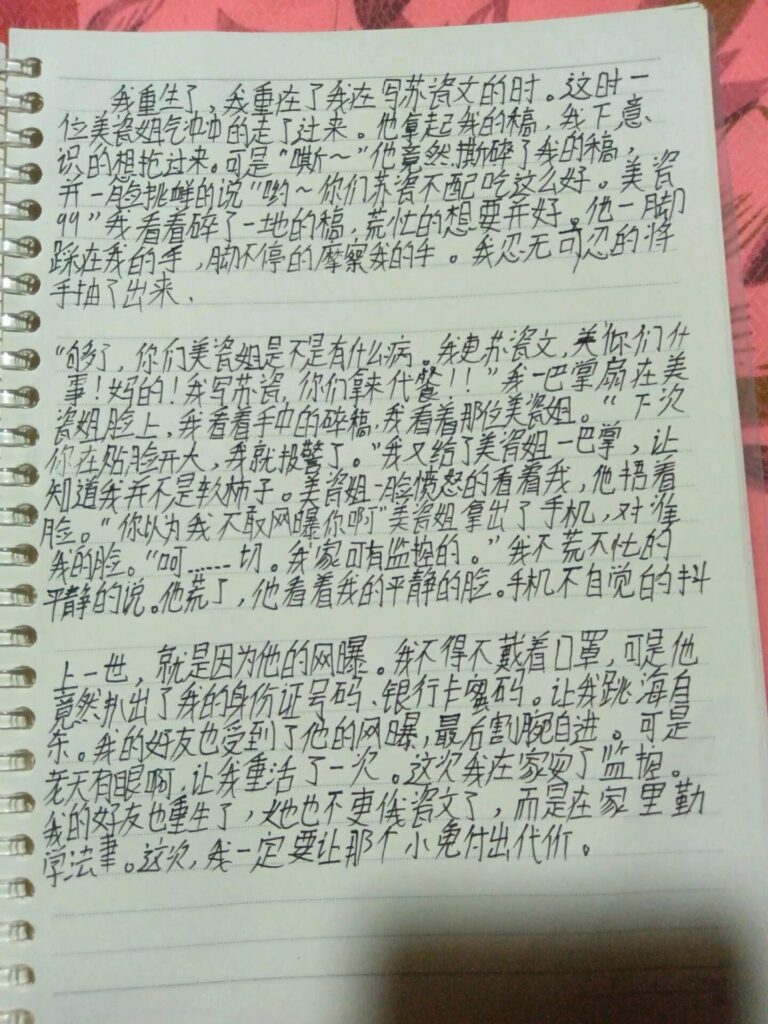 我重生了，我重在了我在写苏瓷文的时。这时一
位美瓷姐气冲冲的走了过来。他拿起我的稿，我下意
识的想抢过来。可是“嘶～”他竟然撕碎了我的稿，
并一脸挑衅的说“哟～你们苏瓷不配吃这么好。美瓷
99”我看着碎了一地的稿，荒忙的想要并好。他一脚
踩在我的手，脚不停的摩察我的手。我忍无可忍的将
手抽了出来.
“够了，你们美瓷姐是不是有什么病。我更苏瓷文，关你们什
事！妈的！我写苏瓷，你们拿来代餐！！”我一巴掌扇在美
瓷姐脸上，我看着手中的碎稿，我看着那位美瓷姐。“下次
你在贴脸开大，我就报警了。”我又给了美瓷姐一巴掌，让
知道我并不是软柿子。美瓷姐一脸愤怒的看着我，他捂着
脸。“你以为我不敢网曝你啊”美瓷姐拿出了手机，对准
我的脸。“呵……切。我家可有监控的。”我不荒不忙的
平静的说。他荒了，他看着我的平静的脸。手机不自觉的抖
上一世，就是因为他的网曝。我不得不戴着口罩，可是他
竟然扒出了我的身份证号码、银行卡蜜码。让我跳海自
杀。我的好友也受到了他的网曝，最后割腕自进。可是
老天有眼啊，让我重活了一次。这次我在家安了监控。
我的好友也重生了，她也不更俄瓷文了，而是在家里勤
学法聿。这次，我一定要让那个小兔付出代价。